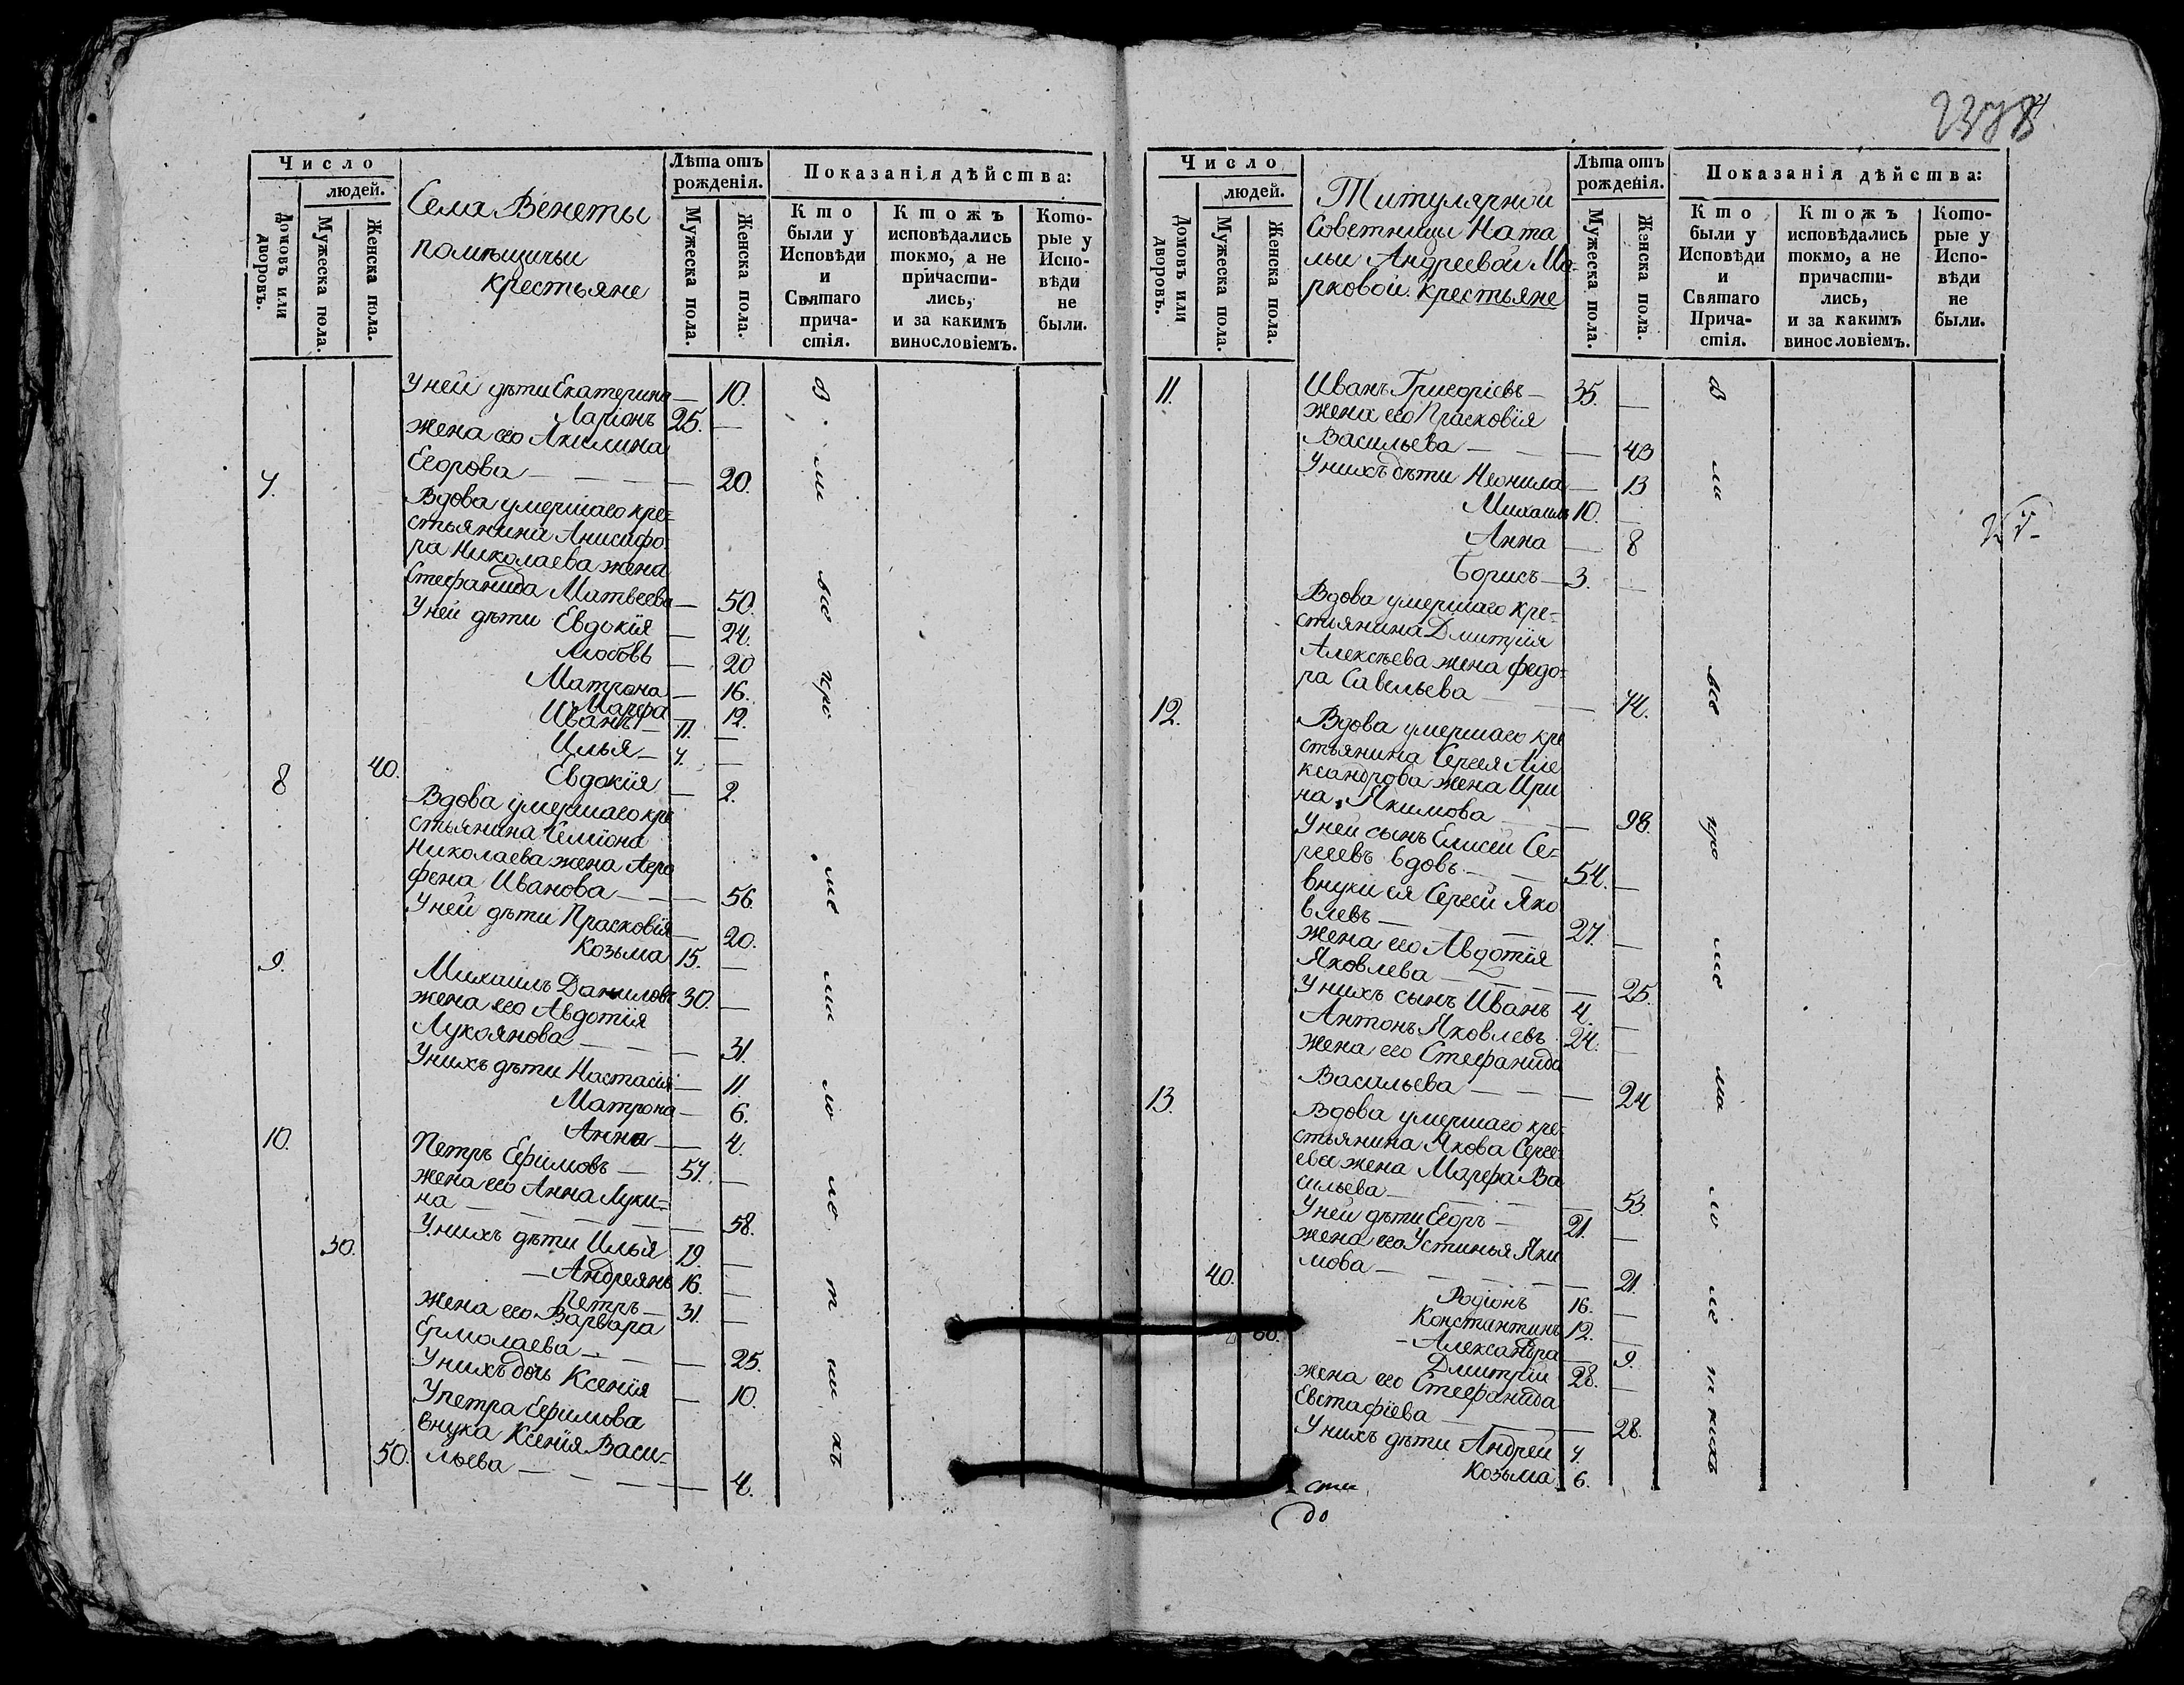 2378
Число
людей.
Домовъ или дворовъ.
Мужеска пола.
Женска пола.
Села Венеты
помѣщичьи
крестьяне
Лѣта отъ рожденія.
Мужеска пола.
Женска пола.
Показанія дѣйства:
Кто были у Исповѣди и Святаго причастія.
Ктожъ исповѣдались токмо, а не причастились, и за какимъ винословіемъ.
Которые у Исповѣди не были.
У ней дѣти Екатерина — 10.
Ларіонъ 25. —
жена его Акилина
Егорова — 20.
7.
Вдова умершаго кре=
стьянина Анисифо
ра Николаева жена
Стефанида Матвеева — 50.
У ней дѣти Евдокія — 24.
Любовь — 20
Матрона — 16.
Марфа — 12.
Иванъ — 11. —
Илья — 7. —
40. Евдокія — 2.
8
Вдова умершаго кре
стьянина Семіона
Николаева жена Агро
фена Иванова — 56.
У ней дѣти Прасковія — 20.
Козьма 15. —
9.
Михаилъ Даниловъ 30. —
жена его Авдотія
Лукоянова — 31.
У нихъ дѣти Настасія — 11.
Матрона — 6.
Анна — 4.
10.
Петръ Ефимовъ — 57. —
жена его Анна Луки=
на — 58.
У нихъ дѣти Илья 19. —
30. — Андреянъ 16. —
Петръ — 31. —
жена его Варвара
Ермолаева — 25.
У нихъ дочь Ксенія — 10.
У Петра Ефимова
внука Ксенія Васи=
50. льева — 4.
Число
людей.
Домовъ или дворовъ.
Мужеска пола.
Женска пола.
Титулярной
Советницы Ната
льи Андреевой Ма=
рковой крестьяне
Лѣта отъ рожденія.
Мужеска пола.
Женска пола.
Показанія дѣйства:
Кто были у Исповѣди и Святаго Причастія.
Ктожъ исповѣдались токмо, а не причастились, и за какимъ винословіемъ.
Которые у Исповѣди не были.
11. Иванъ Григорієвъ — 35. —
жена его Прасковія
Васильева — 43
У нихъ дѣти Неонила — 13
Михаилъ 10. —
Анна — 8
Борисъ — 3. —
Вдова умершаго кре=
стьянина Дмитрія
Алексѣева жена Федо=
ра Савельева — 74.
12.
Вдова умершаго кре
стьянина Сергея Але
ксандрова жена Ири
на Якимова — 98.
У ней сынъ Елисей Се=
ргеевъ вдовъ — 54. —
внуки ея Сергей Яко
влевъ — 27. —
жена его Авдотія
Яковлева — 25.
У нихъ сынъ Иванъ 4. —
Антонъ Яковлевъ 24. —
жена его Стефанида
Васильева — 24
13.
Вдова умершаго кре=
стьянина Якова Серге=
ева жена Марфа Ва
сильева — 53.
У ней дѣти Егоръ — 21. —
жена его Устинья Яки
мова — 21.
40. Родіонъ 16. —
Константинъ 12. —
60. — Александра — 9.
Дмитрій 28. —
жена его Стефанида
Евстафіева — 28.
У нихъ дѣти Андрей 7.
Козьма 6.
сти
до